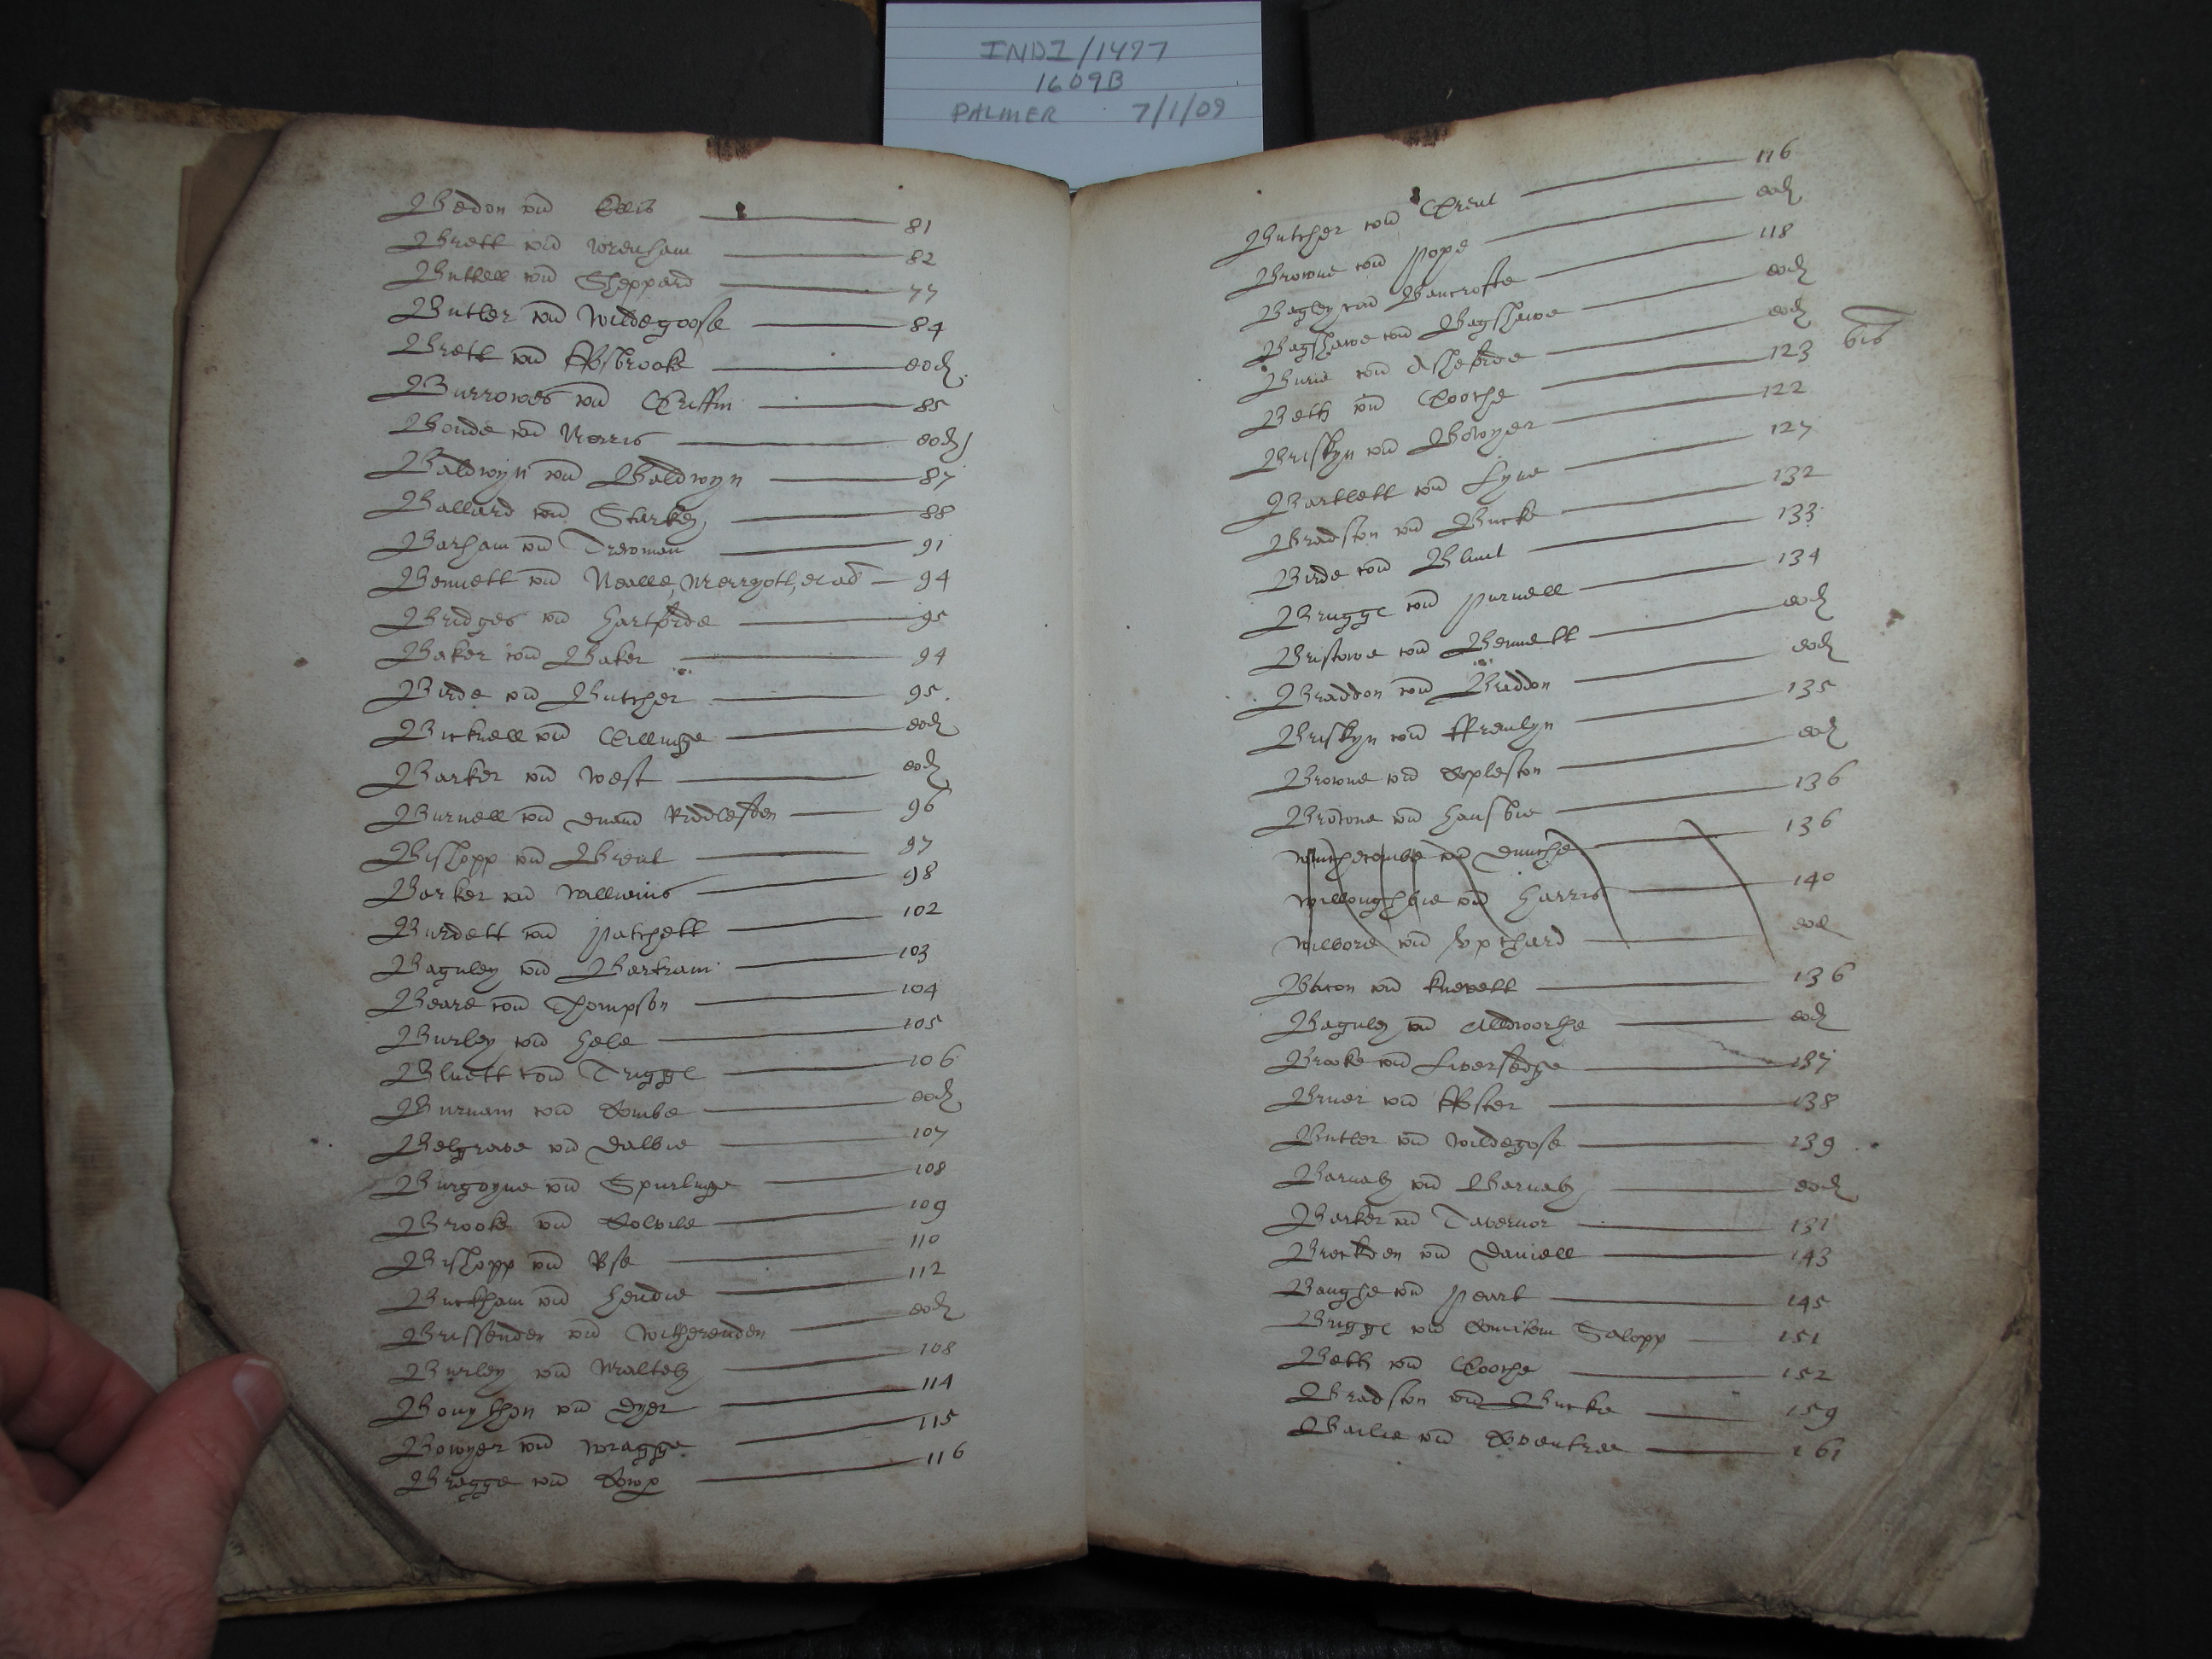 INDI/1497
1609B
PALMER 7/1/09
Bedon con Ellis 81
Brett con Wrenham 82
Buttell con Sheppard 77
Butler con Wildegoose 84
Brett con ffosbrooke eod
Burrowes con Griffin 85
Bonde con Norris eod
Baldwyn con Baldwyn 87
Ballard con Starkey 88
Barham con Trewman 91
Bennett con Nealle, 94
Bridges con Hartforde 95
Baker con Baker 94
Birde con Butcher 95
Bicknell con Gillinge eod
Barker con West eod
Burnell con Riddlesden 96
Bishopp con Brent 97
Barker con Williams 98
Burdett con Patchett 102
Baguley con Bertram 103
Beare con Thompson 104
Burley con Hele 105
Bluett con Trigge 106
Burnam con Combe eod
Belgrave con Dalbie 107
Burgoyne con Spurlinge 108
Brooke con Colvile 109
Bishopp con 110
Buckham con Hendie 112
Brissenden con Witherenden eod
Burley con Maltby 108
Bonython con Dyer 114
Bowyer con Wragge 115
Bragge con 116
Butcher con Grent 116
Browne con Pope eod
Bagley con Bancrofte 118
Bagshawe con Bagshawe eod
Burie con Asheforde eod
Beth con Gooche 123 bis
Briskyn con Bowyer 122
Bartlett con Lyne 127
Bradston con Bucke 132
Birde con Blunt 133
Brugge con Purnell 134
Bristowe con Bennett eod
Braddon con Braddon eod
Briskyn con ffremlyn 135
Browne con Copleston eod
Browne con Hansbie 136
Winchecombe con Dunche 136
Willoughbie con Harris 140
Wilbore con eod
Bacon con Knevett 136
Baguley con Alldworthe eod
Brooke con Liversedge 137
Bruer con ffoster 138
Butler con Wildegose 139
Barnaby con Barnaby eod
Barker con Tavernor 131
Brockden con Daniell 143
Baughe con Peart 145
Brigge con Comitem Salopp 151
Beth con Gooche 152
Bradston con Bucke 159
Bailie con 161